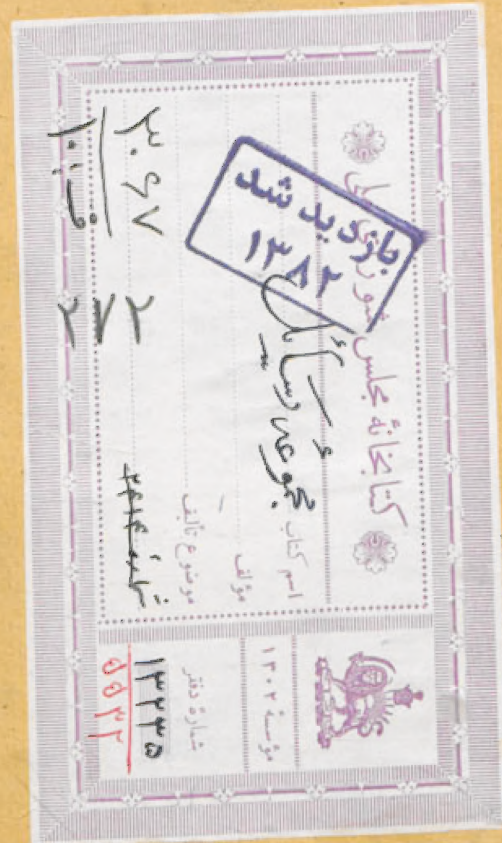 کتابخانهٔ مجلس شورای ملی
بازدید شد
۱۳۸۲
اسم کتاب مجموعه رسائل
مؤلف
موضوع تألیف
مؤسسهٔ ۱۳۰۲
شمارهٔ دفتر
۱۳۲۳۵
۵۵۳۲
۲۷۲